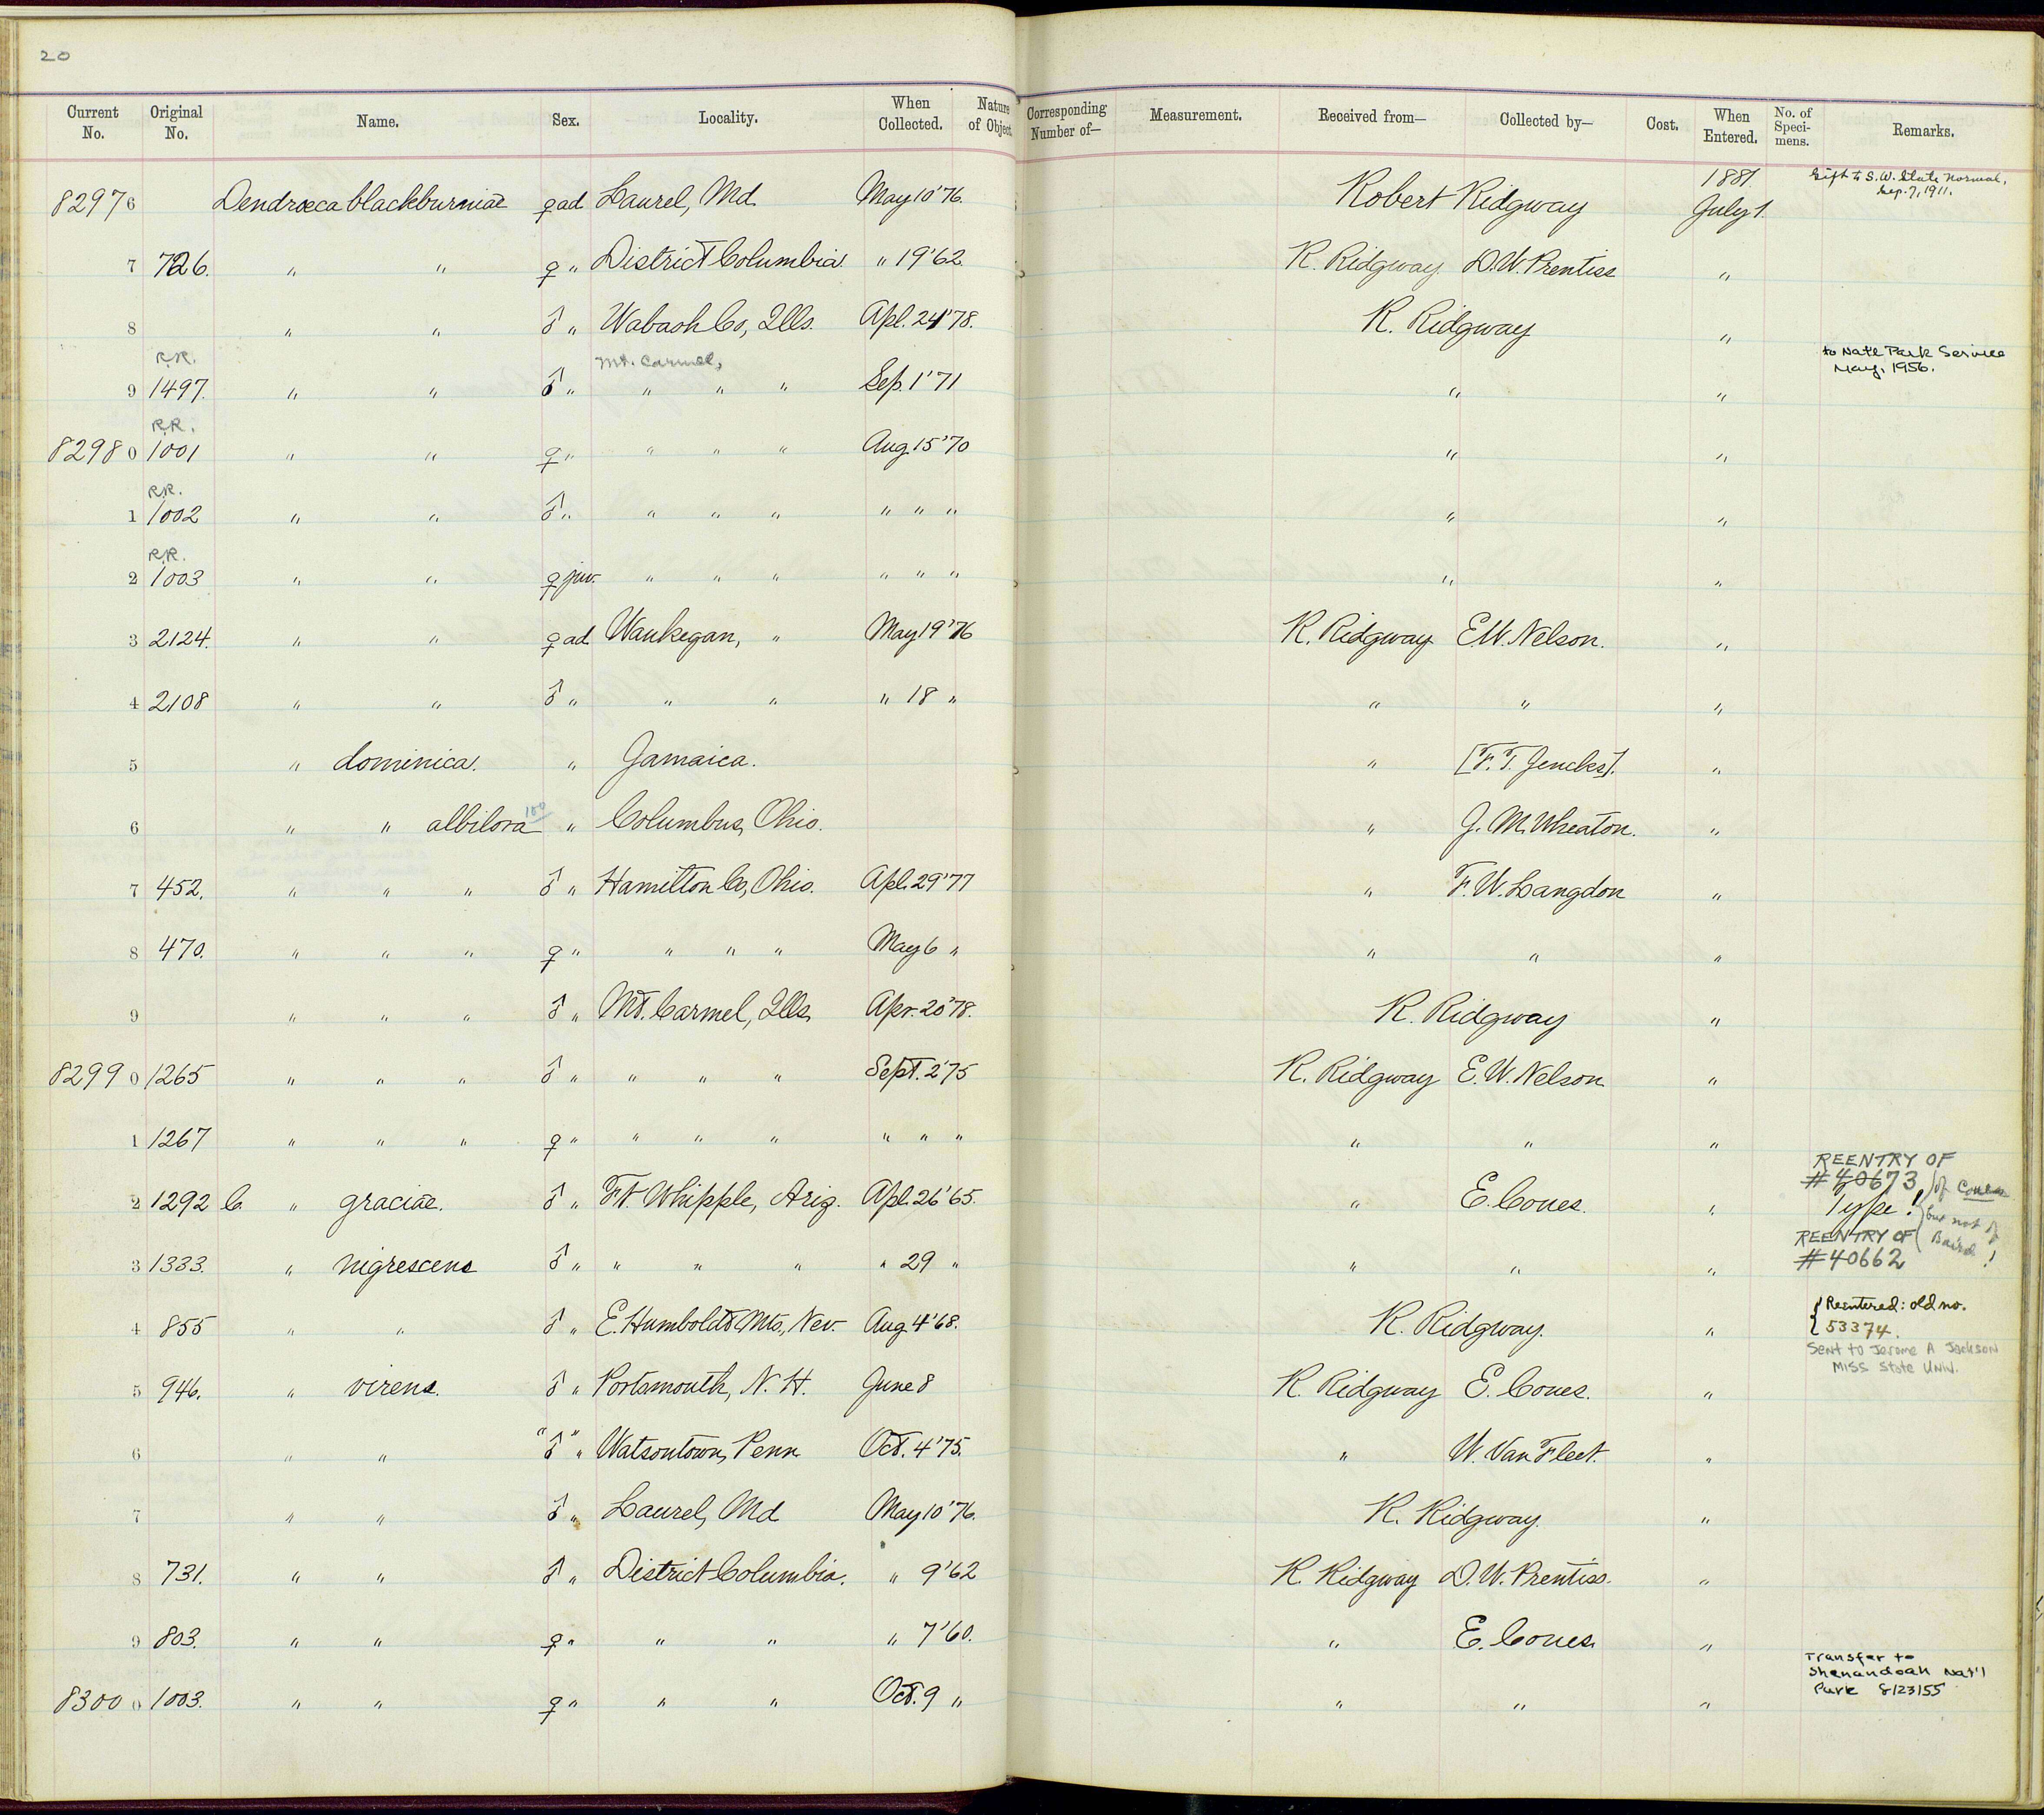 20
Current No. Original No. Name. Sex. Locality. When Collected. Nature of Object Corresponding Number of— Measurement. Received from— Collected by— Cost. When Entered. No. of Speci-mens. Remarks.
82976 Dendrœca blackburniæ ♀ ad Laurel, Md May 10'76. Robert Ridgway 1881. July 1. Gift to S.W. State Normal, Sep. 7, 1911.
7 726. " " ♀ " District Columbia " 19'62. R. Ridgway D.W. Prentiss "
8 " " ♂ " Wabash Co, Ills. Apl. 24'78. R. Ridgway "
9 R.R. 1497. " " ♂ " Mt. Carmel, " " " Sep. 1'71 " " to Natl Park Service May, 1956.
82980 R.R. 1001 " " ♀ " " " " Aug. 15'70 " "
1 R.R. 1002 " " ♂ " " " " " " " " "
2 R.R. 1003 " " ♀ juv. " " " " " " " "
3 2124. " " ♀ ad Waukegan, " May 19'76 R. Ridgway E.W. Nelson. "
4 2108 " " ♂ " " " " 18 " " " "
5 " dominica. " Jamaica. " [F.T. Jencks]. "
6 " " albilora 100 " Columbus, Ohio. " J.M. Wheaton. "
7 452. " " " ♂ " Hamilton Co, Ohio. Apl. 29'77 " F.W. Langdon "
8 470. " " " ♀ " " " " May 6 " " " "
9 " " " ♂ " Mt. Carmel, Ills Apr. 20'78. R. Ridgway "
82990 1265 " " " ♂ " " " " Sept. 2'75 R. Ridgway E.W. Nelson "
1 1267 " " " ♀ " " " " " " " " " "
2 1292 C. " graciæ. ♂ " Ft. Whipple, Ariz. Apl. 26'65. " E. Coues. " REENTRY OF #40673 Type! of Coues but not of Baird!
3 1333. " nigrescens ♂ " " " " " 29 " " " " REENTRY OF #40662
4 855 " " ♂ " E. Humboldt Mts, Nev. Aug. 4'68. R. Ridgway. " Reentered: old no. 53374. Sent to Jerome A Jackson Miss State Univ.
5 946. " virens. ♂ " Portsmouth, N.H. June 8 R. Ridgway E. Coues. "
6 " " "♂" " Watsontown, Penn Oct. 4'75. " W. Van Fleet. "
7 " " ♂ " Laurel, Md May 10'76. R. Ridgway. "
8 731. " " ♂ " District Columbia. " 9'62 R. Ridgway D.W. Prentiss. "
9 803. " " ♀ " " " " 7'60. " E. Coues. "
83000 1003. " " ♀ " " " Oct. 9 " " " " Transfer to Shenandoah Nat'l Park 8/23/55